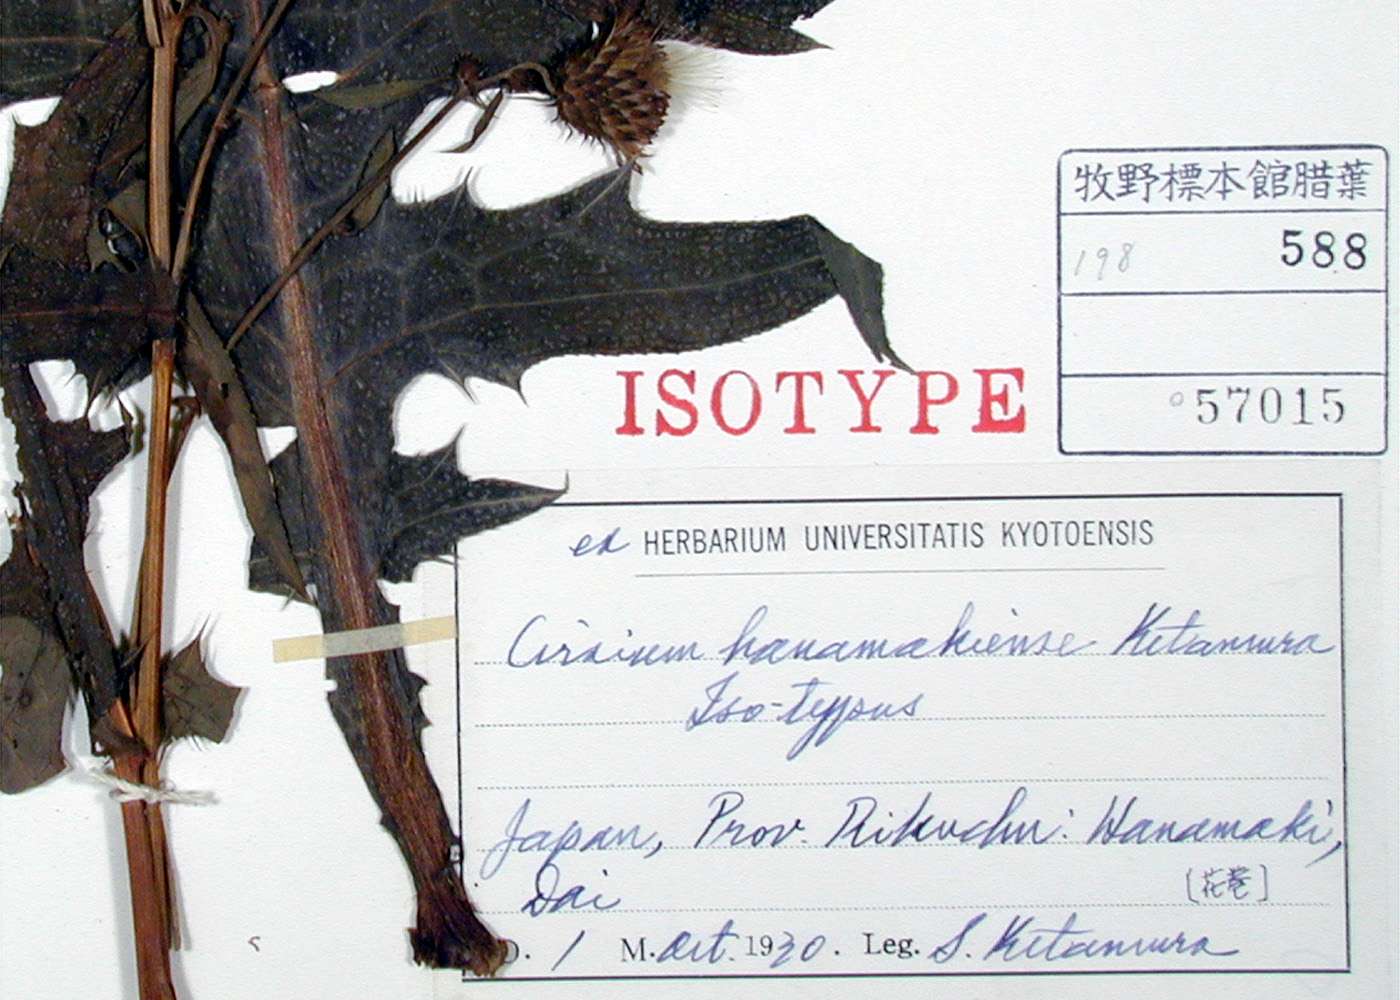 牧野標本館腊葉
198 588
57015
ISOTYPE
ex HERBARIUM UNIVERSITATIS KYOTOENSIS
Cirsium hanamakiense Kitamura
Iso-typus
Japan, Prov. Rikuchu: Hanamaki,
Dai [花巻]
D. 1 M. Oct. 1930. Leg. S. Kitamura